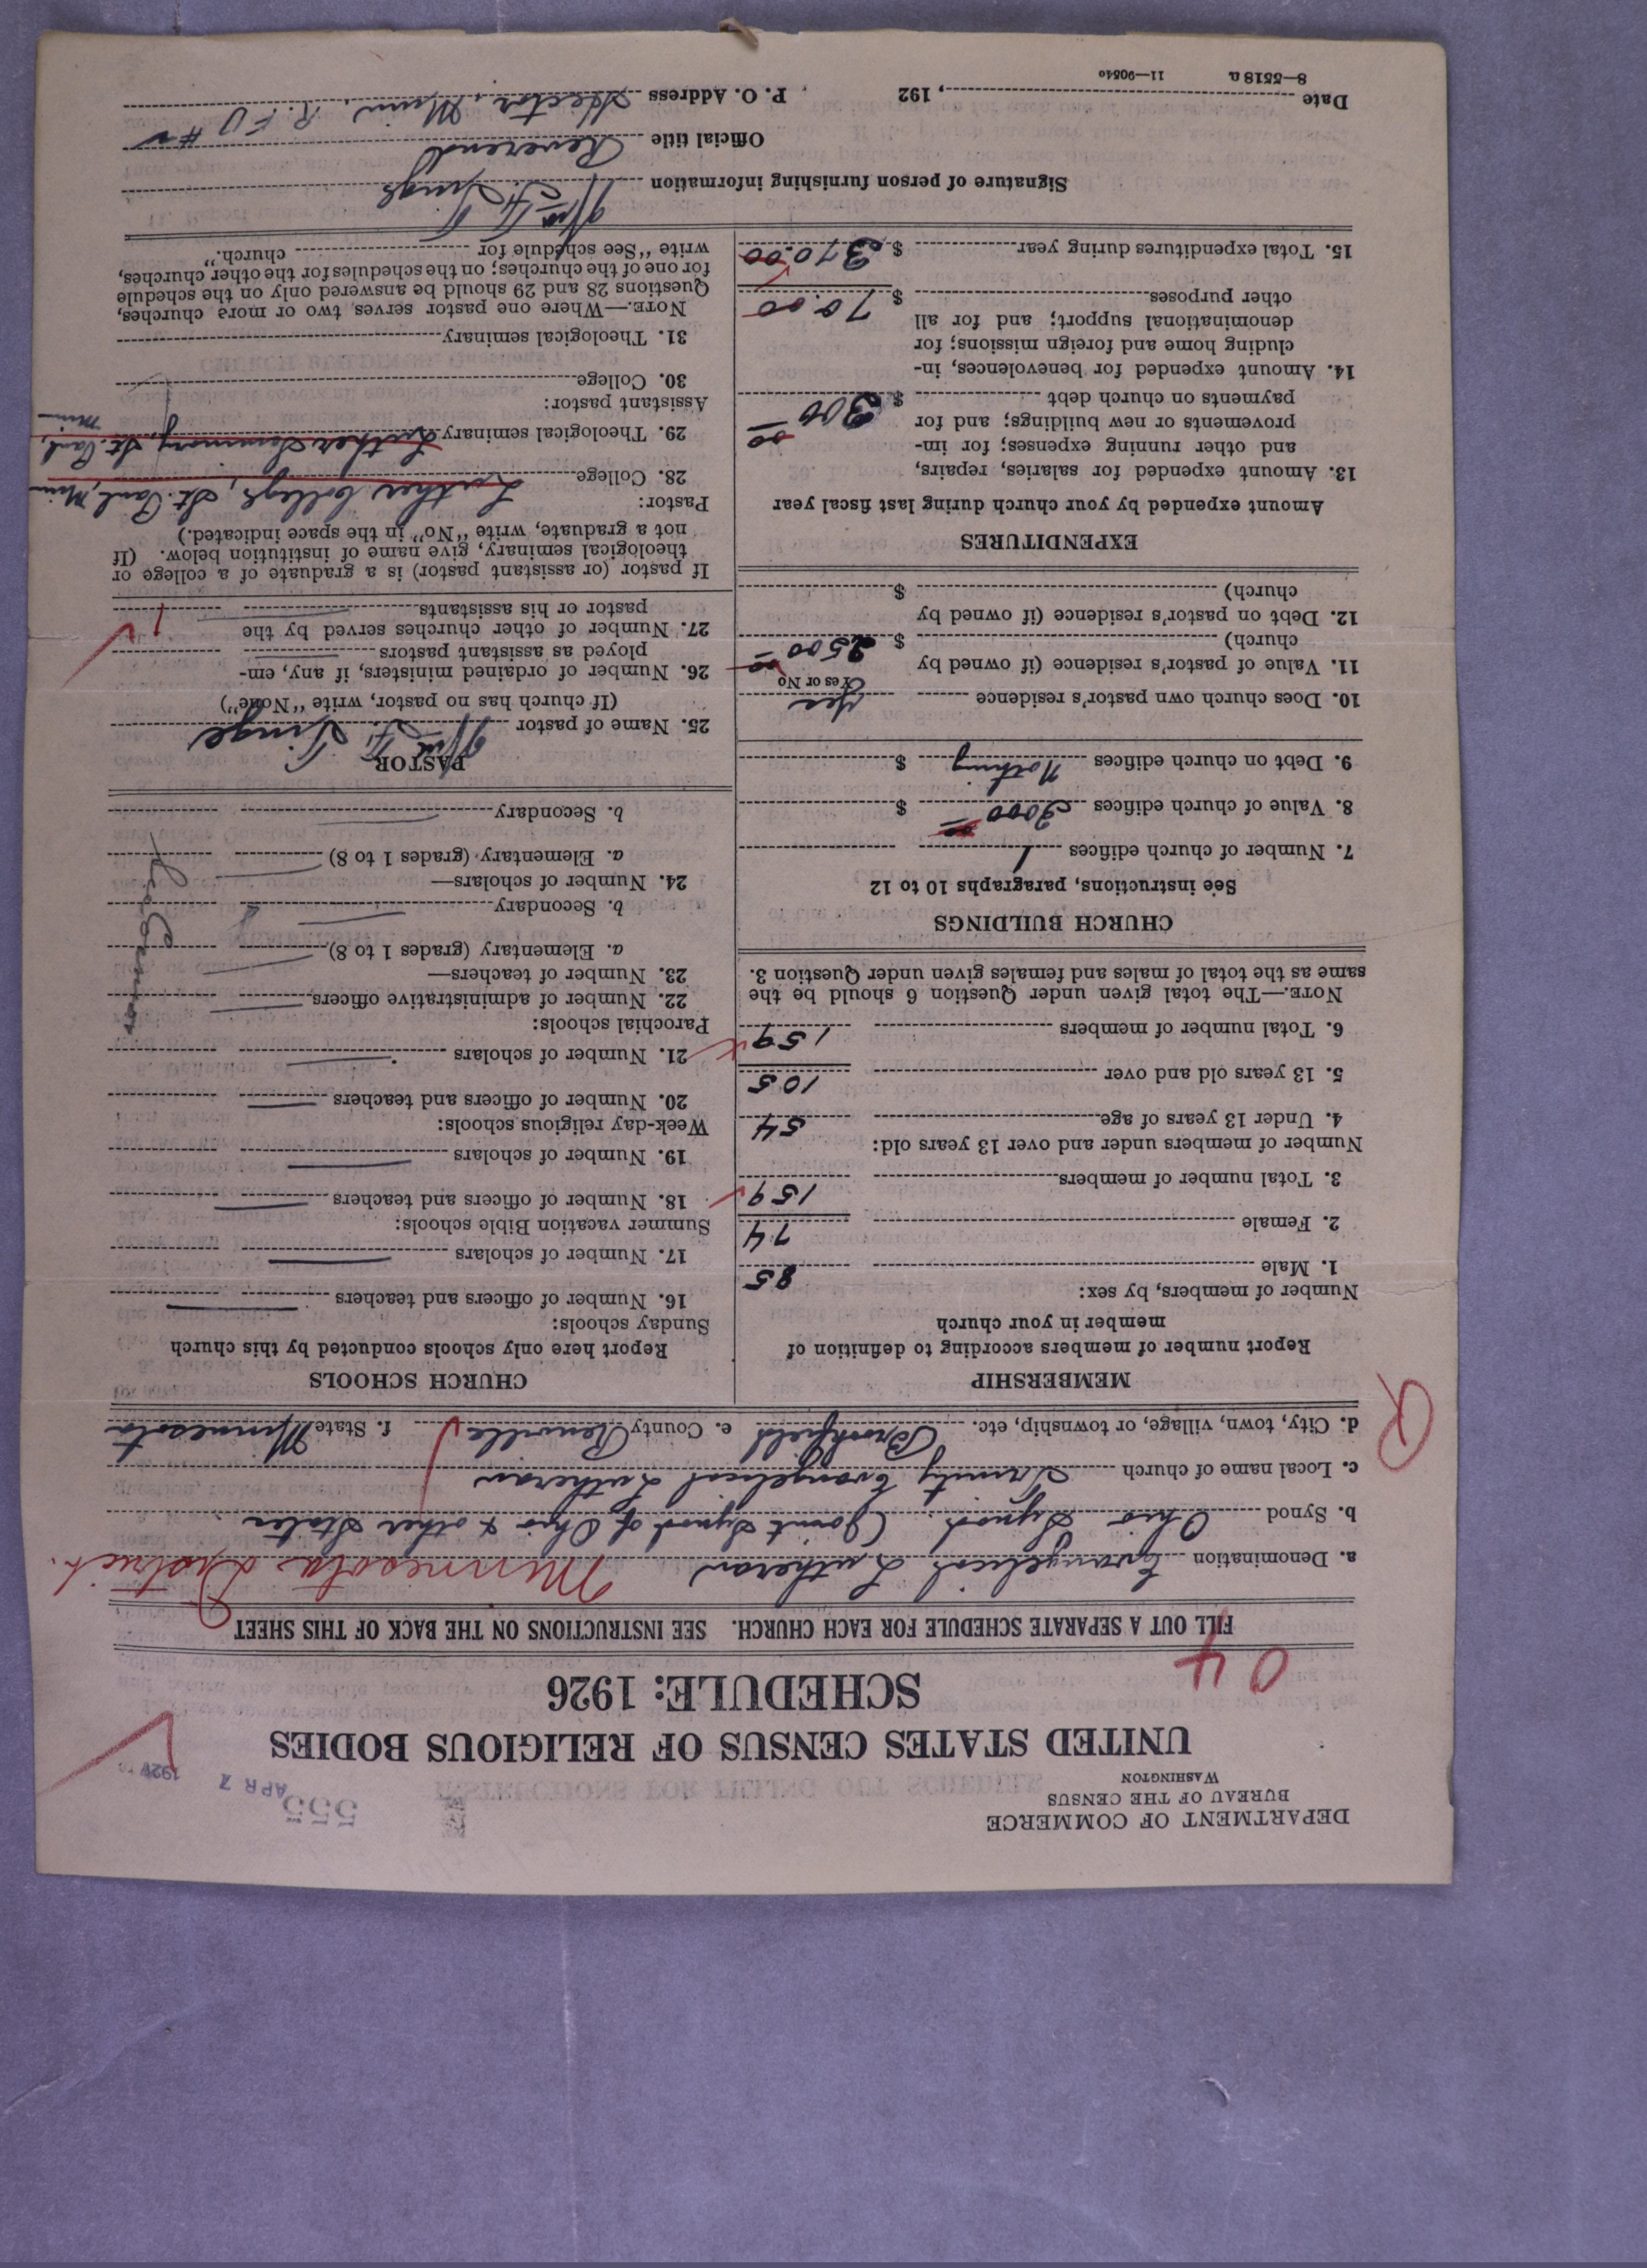 DEPARTMENT OF COMMERCE
BUREAU OF THE CENSUS
WASHINGTON
555
APR 7
UNITED STATES CENSUS OF RELIGIOUS BODIES
SCHEDULE: 1926
04
FILL OUT A SEPARATE SCHEDULE FOR EACH CHURCH. SEE INSTRUCTIONS ON THE BACK OF THIS SHEET
a. Denomination Evangelical Lutheran Minnesota District.
b. Synod Ohio Synod (Joint Synod of Ohio & other States
c. Local name of church Trinity Evangelical Lutheran
d. City, town, village, or township, etc. Brookfield e. County Renville f. State Minnesota
MEMBERSHIP
Report number of members according to definition of
member in your church
Number of members, by sex:
1. Male 85
2. Female 74
3. Total number of members 159
Number of members under and over 13 years old:
4. Under 13 years of age 54
5. 13 years old and over 105
6. Total number of members 159
NOTE.—The total given under Question 6 should be the
same as the total of males and females given under Question 3.
CHURCH BUILDINGS
See instructions, paragraphs 10 to 12
7. Number of church edifices 1
8. Value of church edifices 3000 00 $
9. Debt on church edifices Nothing $
10. Does church own pastor's residence Yes
Yes or No
11. Value of pastor's residence (if owned by
church) $ 2500 00
12. Debt on pastor's residence (if owned by
church) $
EXPENDITURES
Amount expended by your church during last fiscal year
13. Amount expended for salaries, repairs,
and other running expenses; for im-
provements or new buildings; and for
payments on church debt $ 300 00
14. Amount expended for benevolences, in-
cluding home and foreign missions; for
denominational support; and for all
other purposes $ 70.00
15. Total expenditures during year $ 370.00
CHURCH SCHOOLS
Report here only schools conducted by this church
Sunday schools:
16. Number of officers and teachers
17. Number of scholars
Summer vacation Bible schools:
18. Number of officers and teachers
19. Number of scholars
Week-day religious schools:
20. Number of officers and teachers
21. Number of scholars
Parochial schools:
22. Number of administrative officers
23. Number of teachers—
a. Elementary (grades 1 to 8)
b. Secondary
24. Number of scholars—
a. Elementary (grades 1 to 8)
b. Secondary
PASTOR
25. Name of pastor
(If church has no pastor, write "None")
26. Number of ordained ministers, if any, em-
ployed as assistant pastors
27. Number of other churches served by the
pastor or his assistants 1
If pastor (or assistant pastor) is a graduate of a college or
theological seminary, give name of institution below. (If
not a graduate, write "No" in the space indicated.)
Pastor:
28. College Luther College, St. Paul, Minn
29. Theological seminary Luther Seminary, St. Paul, Minn
Assistant pastor:
30. College
31. Theological seminary
NOTE.—Where one pastor serves two or more churches,
Questions 28 and 29 should be answered only on the schedule
for one of the churches; on the schedules for the other churches,
write "See schedule for church."
Signature of person furnishing information
Official title Reverend
Date , 192 P. O. Address Hector, Minn. R.F.D
8—5518 a 11—9054